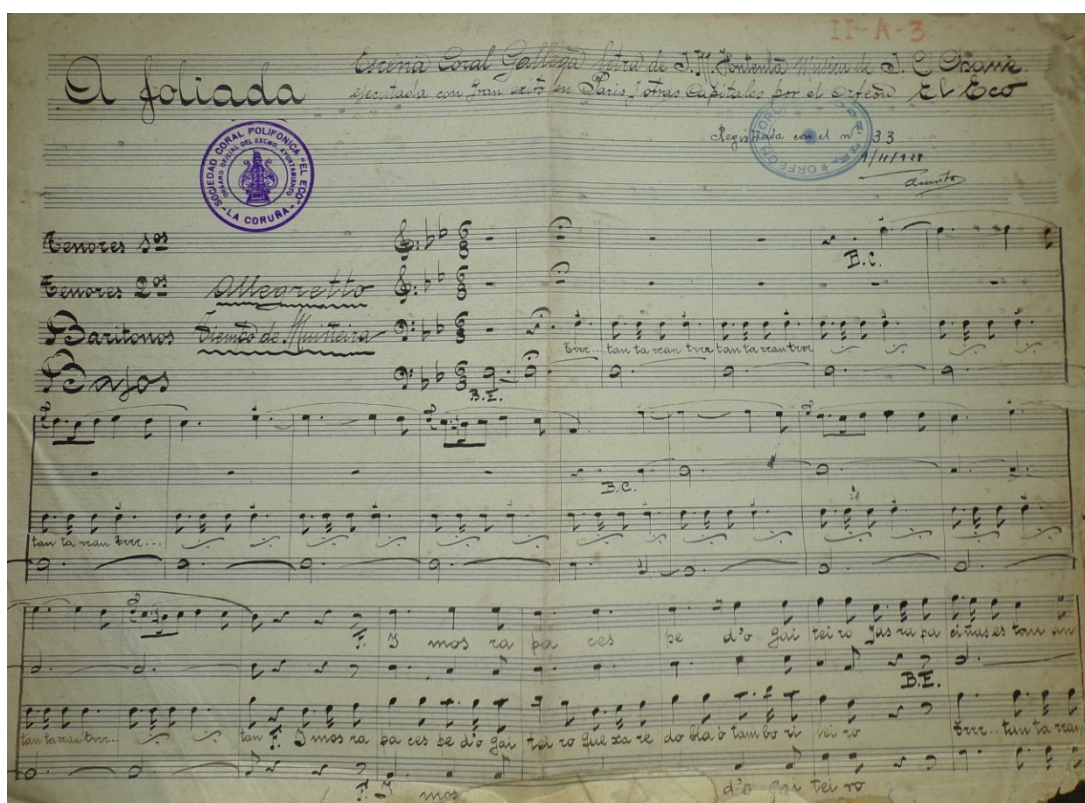 II-A-3
A foliada
Escena Coral Gallega letra de J. M. Hontenla Musica de J. C. Chané.
ejecutada con gran exito en Paris y otras Capitales por el Orfeón El Eco
SOCIEDAD CORAL POLIFONICA "EL ECO"
ORGANO OFICIAL DEL EXCMO. AYUNTAMIENTO
- LA CORUÑA -
Registrada con el nº 33
Tenores 1os
B.C.
Tenores 2os Allegretto
Baritonos Tiempo de Muiñeira
Trrr... tan ta ran trrr tan ta ran trrr
Bajos
B.E.
B.C.
tan ta ran trrr...
F. I mos ra pa ces pe d'o gai tei ro Jas ra pa ciñas es tan un
B.E.
tan ta ran trrr... tan F. I mos ra pa ces pe d'o gai tei ro que xa re do bla o tam bo ri lei ro Trrr... tan ta rran
F. I mos d'o gai tei ro